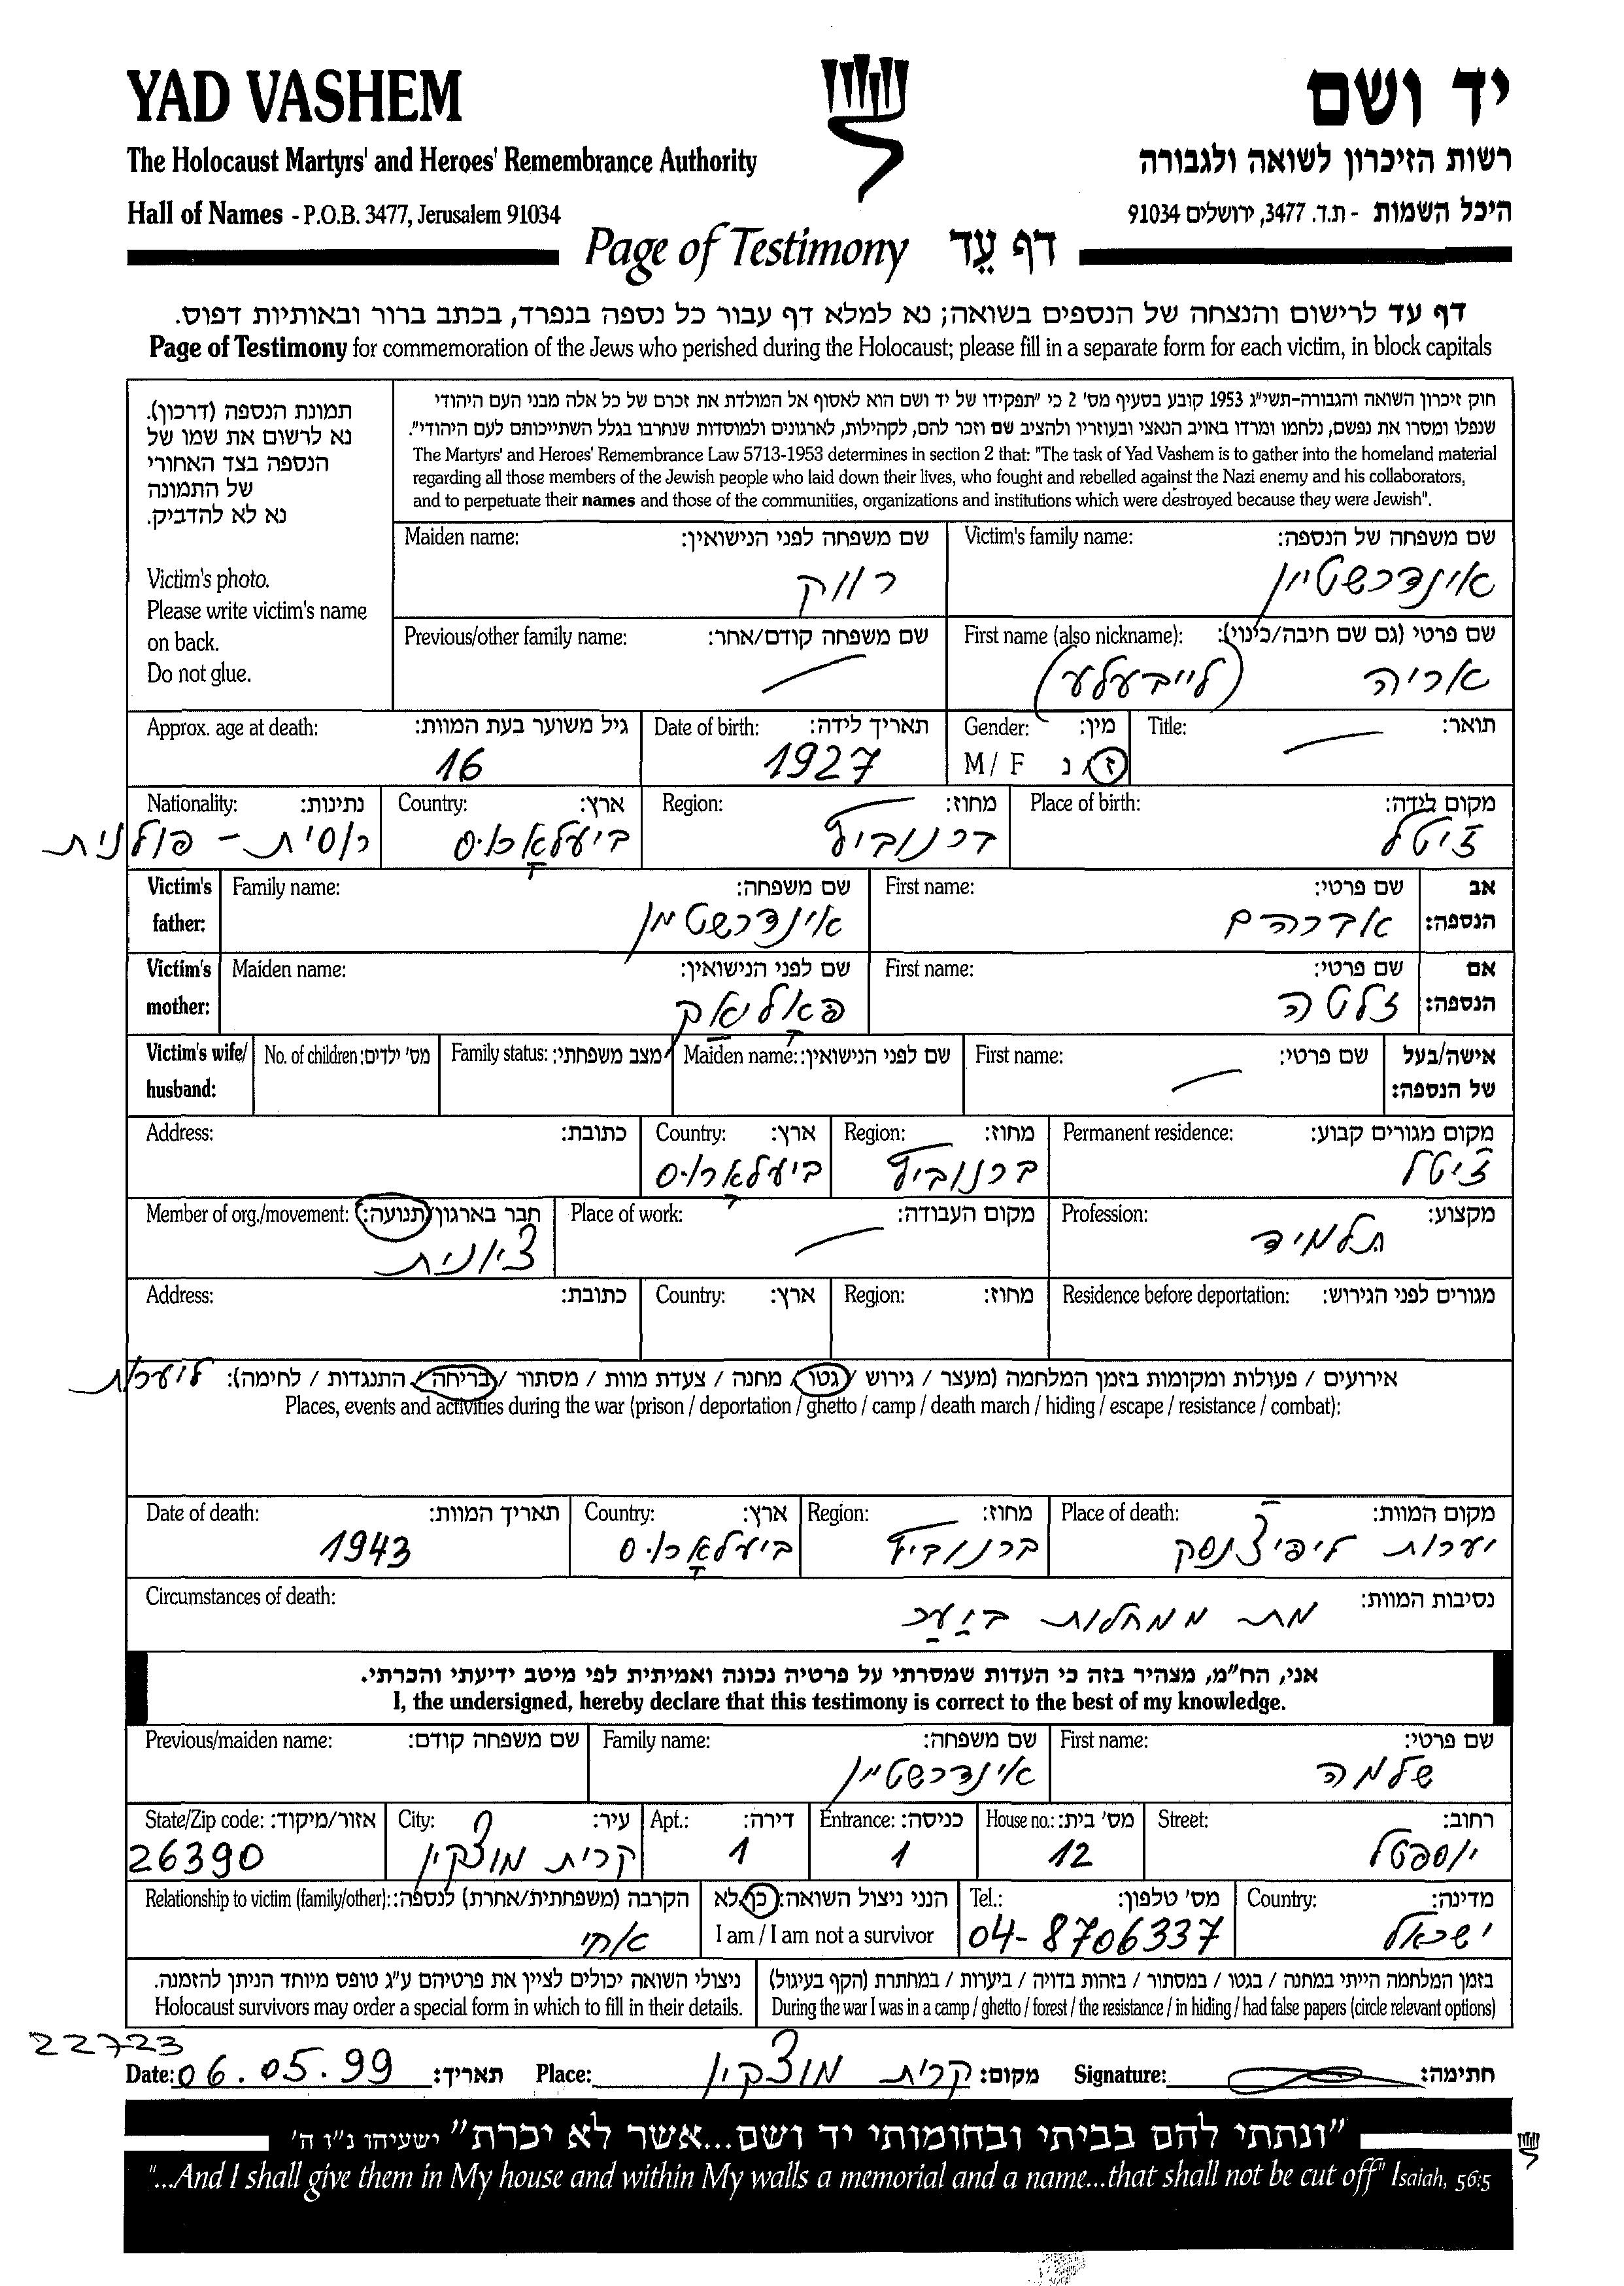 YAD VASHEM
יד ושם
The Holocaust Martyrs' and Heroes' Remembrance Authority
רשות הזיכרון לשואה ולגבורה
Hall of Names - P.O.B. 3477, Jerusalem 91034
היכל השמות - ת.ד. 3477, ירושלים 91034
Page of Testimony דף עֵד
דף עד לרישום והנצחה של הנספים בשואה; נא למלא דף עבור כל נספה בנפרד, בכתב ברור ובאותיות דפוס.
Page of Testimony for commemoration of the Jews who perished during the Holocaust; please fill in a separate form for each victim, in block capitals
תמונת הנספה (דרכון).
נא לרשום את שמו של
הנספה בצד האחורי
של התמונה
נא לא להדביק.
Victim's photo.
Please write victim's name
on back.
Do not glue.
חוק זיכרון השואה והגבורה-תשי"ג 1953 קובע בסעיף מס' 2 כי "תפקידו של יד ושם הוא לאסוף אל המולדת את זכרם של כל אלה מבני העם היהודי
שנפלו ומסרו את נפשם, נלחמו ומרדו באויב הנאצי ובעוזריו ולהציב שם וזכר להם, לקהילות, לארגונים ולמוסדות שנחרבו בגלל השתייכותם לעם היהודי".
The Martyrs' and Heroes' Remembrance Law 5713-1953 determines in section 2 that: "The task of Yad Vashem is to gather into the homeland material
regarding all those members of the Jewish people who laid down their lives, who fought and rebelled against the Nazi enemy and his collaborators,
and to perpetuate their names and those of the communities, organizations and institutions which were destroyed because they were Jewish".
Victim's family name: שם משפחה של הנספה:
אינדרשטיין
Maiden name: שם משפחה לפני הנישואין:
רווק
First name (also nickname): שם פרטי (גם שם חיבה/כינוי):
אריה (לייבעלע)
Previous/other family name: שם משפחה קודם/אחר:
Title: תואר:
Gender: מין:
M / F ז / נ
Date of birth: תאריך לידה:
1927
Approx. age at death: גיל משוער בעת המוות:
16
Place of birth: מקום לידה:
ז'יטל
Region: מחוז:
ברנוביץ'
Country: ארץ:
ביעלאָרוס
Nationality: נתינות:
רוסית - פולנית
Victim's father: אב הנספה:
First name: שם פרטי:
אברהם
Family name: שם משפחה:
אינדרשטיין
Victim's mother: אם הנספה:
First name: שם פרטי:
זלטה
Maiden name: שם לפני הנישואין:
פאָליאַק
Victim's wife/ husband: אישה/בעל של הנספה:
First name: שם פרטי:
Maiden name: שם לפני הנישואין:
Family status: מצב משפחתי:
No. of children: מס' ילדים:
Permanent residence: מקום מגורים קבוע:
ז'יטל
Region: מחוז:
ברנוביץ'
Country: ארץ:
ביעלאָרוס
Address: כתובת:
Profession: מקצוע:
תלמיד
Place of work: מקום העבודה:
Member of org./movement: חבר בארגון/תנועה:
ציונית
Residence before deportation: מגורים לפני הגירוש:
Region: מחוז:
Country: ארץ:
Address: כתובת:
אירועים / פעולות ומקומות בזמן המלחמה (מעצר / גירוש / גטו / מחנה / צעדת מוות / מסתור / בריחה / התנגדות / לחימה):
Places, events and activities during the war (prison / deportation / ghetto / camp / death march / hiding / escape / resistance / combat):
Place of death: מקום המוות:
יערות ליפיצ'נסק
Region: מחוז:
ברנוביץ'
Country: ארץ:
ביעלאָרוס
Date of death: תאריך המוות:
1943
Circumstances of death: נסיבות המוות:
מת ממחלות ביַעַר
אני, הח"מ, מצהיר בזה כי העדות שמסרתי על פרטיה נכונה ואמיתית לפי מיטב ידיעתי והכרתי.
I, the undersigned, hereby declare that this testimony is correct to the best of my knowledge.
First name: שם פרטי:
שלמה
Family name: שם משפחה:
אינדרשטיין
Previous/maiden name: שם משפחה קודם:
Street: רחוב:
יוספטל
House no.: מס' בית:
12
Entrance: כניסה:
1
Apt.: דירה:
1
City: עיר:
קרית מוצקין
State/Zip code: אזור/מיקוד:
26390
Country: מדינה:
ישראל
Tel.: מס' טלפון:
04-8706337
הנני ניצול השואה: כן/לא
I am / I am not a survivor
Relationship to victim (family/other): הקרבה (משפחתית/אחרת) לנספה:
אחי
בזמן המלחמה הייתי במחנה / בגטו / במסתור / בזהות בדויה / ביערות / במחתרת (הקף בעיגול)
During the war I was in a camp / ghetto / forest / the resistance / in hiding / had false papers (circle relevant options)
ניצולי השואה יכולים לציין את פרטיהם ע"ג טופס מיוחד הניתן להזמנה.
Holocaust survivors may order a special form in which to fill in their details.
22723
Date: 06.05.99 תאריך: Place: קרית מוצקין מקום: Signature: חתימה:
"ונתתי להם בביתי ובחומותי יד ושם...אשר לא יכרת" ישעיהו נ"ו ה'
"...And I shall give them in My house and within My walls a memorial and a name...that shall not be cut off" Isaiah, 56:5